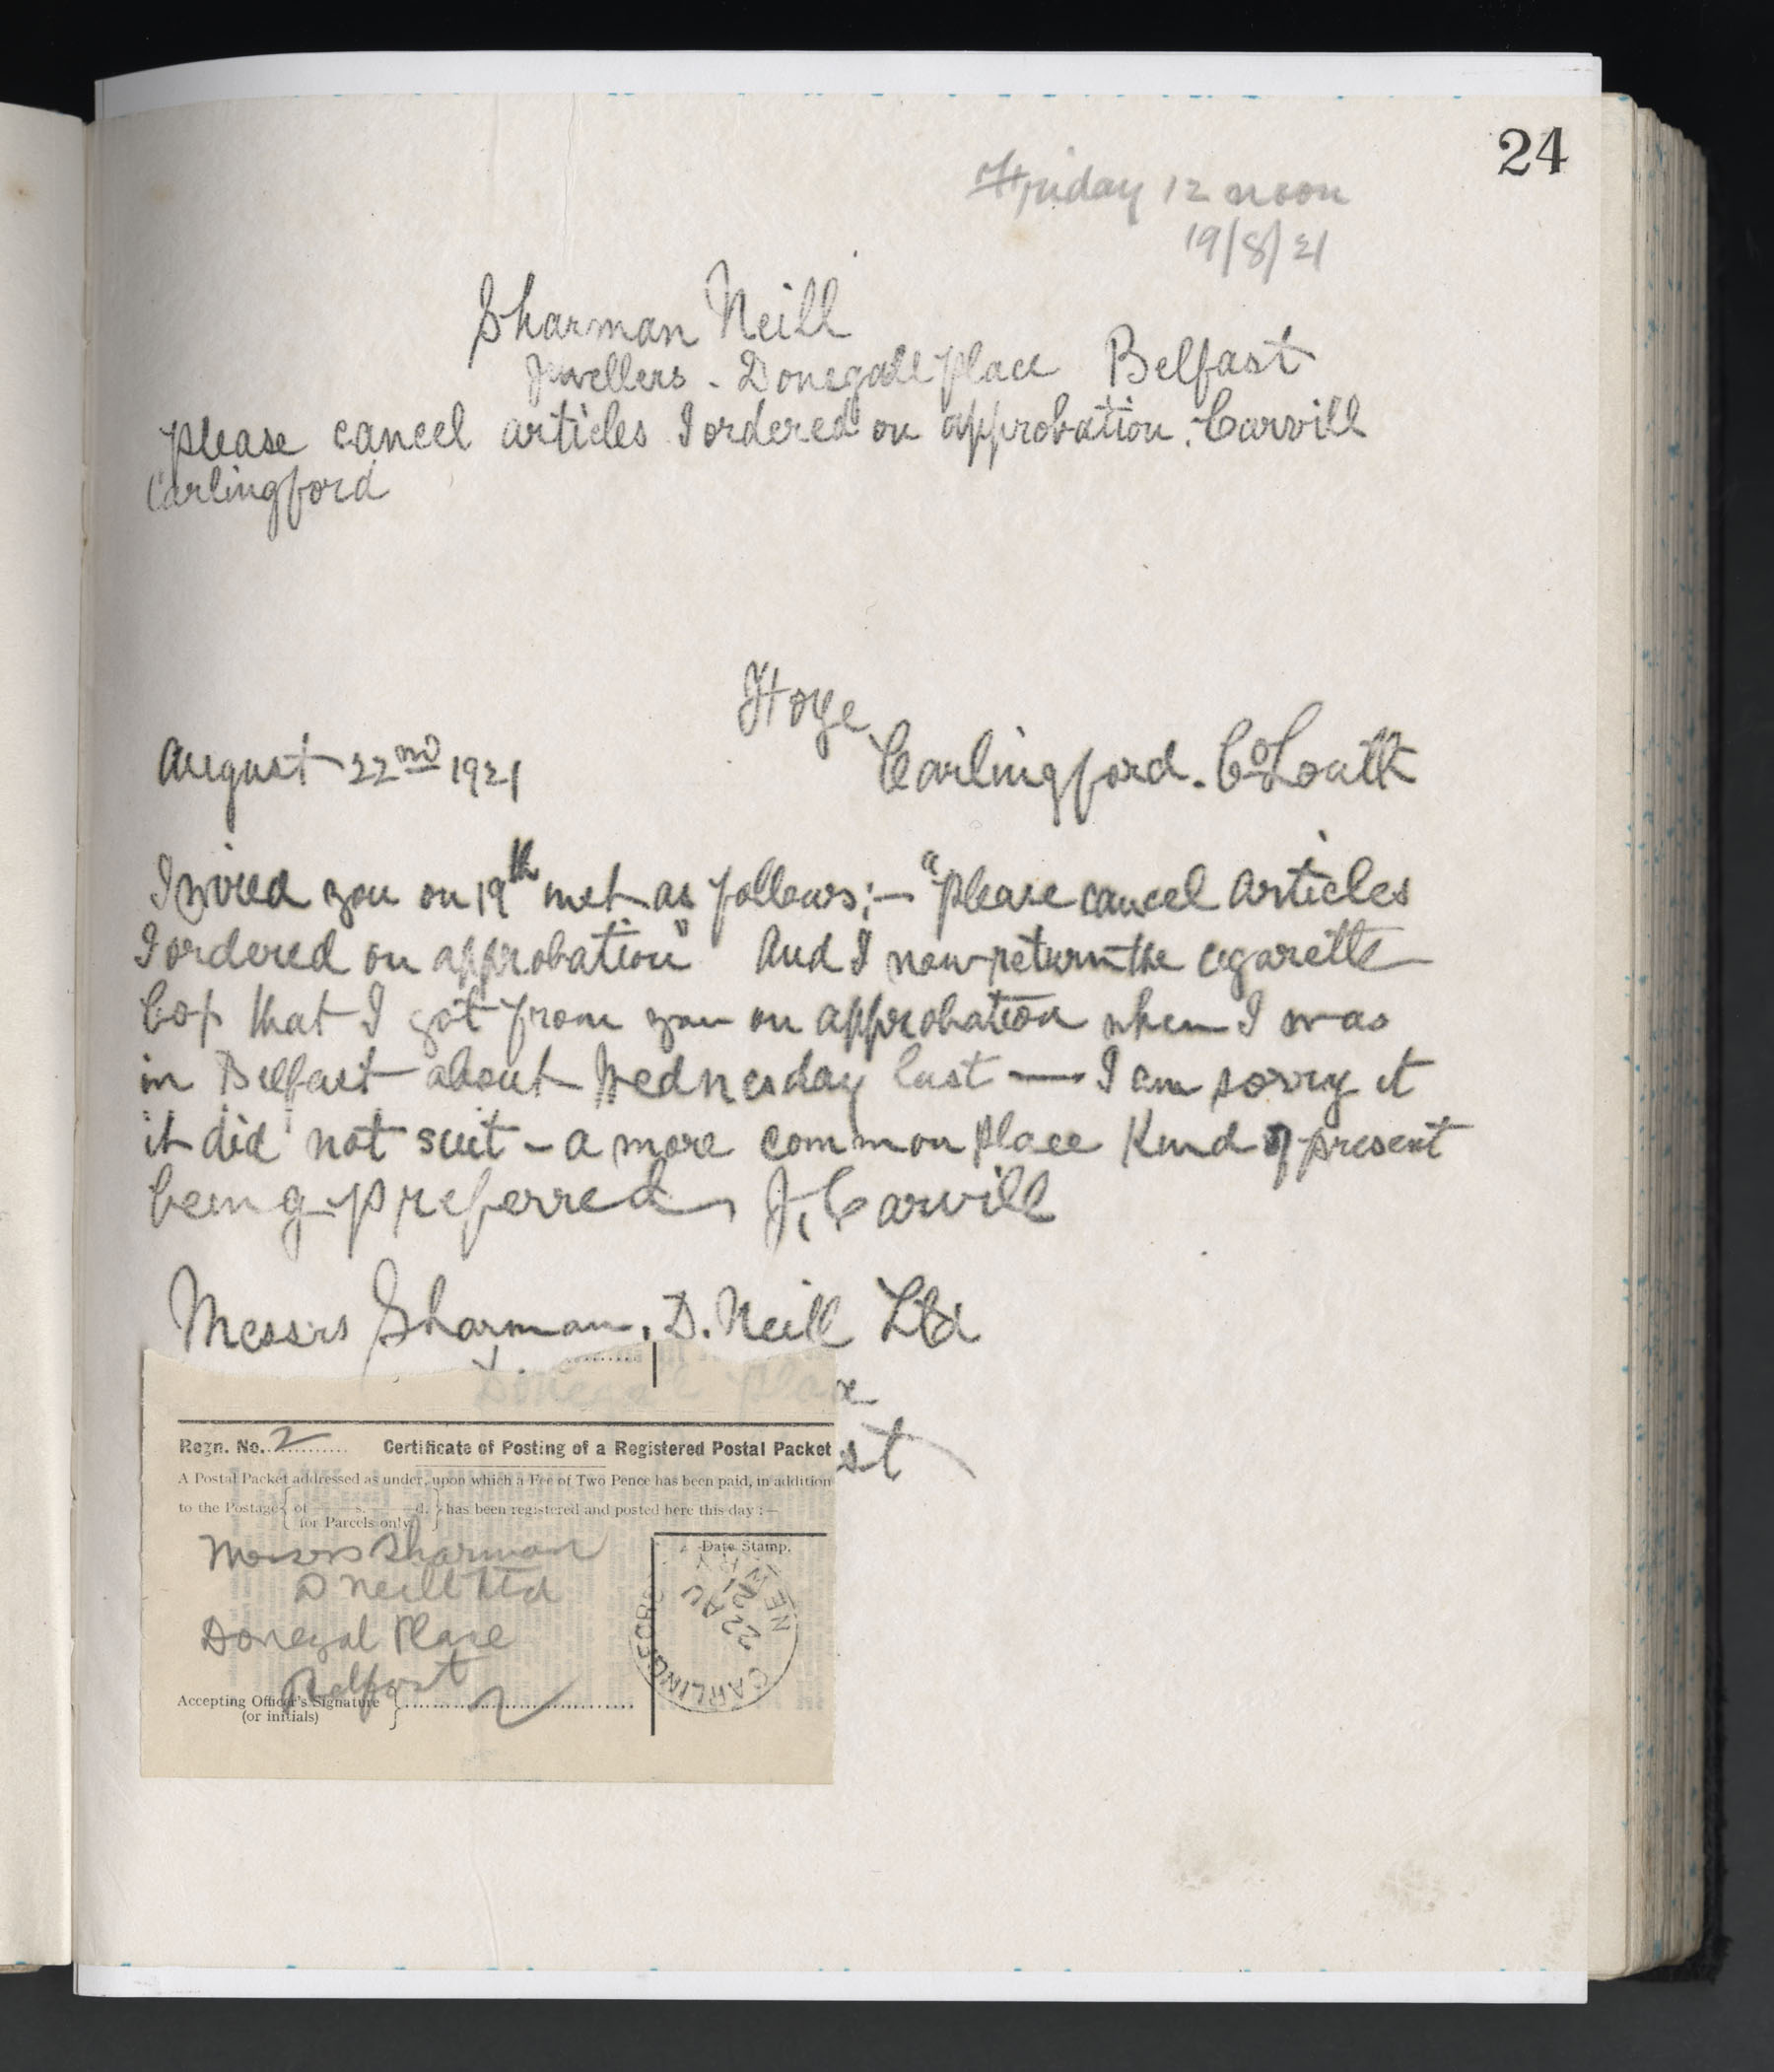 24
Friday 12 noon
19/8/21
Sharman Neill
Jewellers - Donegall place Belfast
please cancel articles I ordered on approbation. Carvill
Carlingford
August 22nd 1921
Carlingford. Co Louth
I wired you on 19th inst as follows:— "please cancel articles
I ordered on approbation" And I now return the cigarette
that I got from you on approbation when I was
in Belfast about Wednesday last — I am sorry it
it did not suit - a more common place kind of present
being preferred J. Carvill
Messrs Sharman. D. Neill Ltd
Donegal place
st
Regn. No. 2 Certificate of Posting of a Registered Postal Packet
A Postal Packet addressed as under, upon which a Fee of Two Pence has been paid, in addition
to the Postage { of s. d. } has been registered and posted here this day :—
for Parcels only
Messrs Sharman
D Neill Ltd
Donegal Place
Belfast
Date Stamp.
CARLINGFORD
22 AU
21
NEWRY
Accepting Officer's Signature
(or initials)